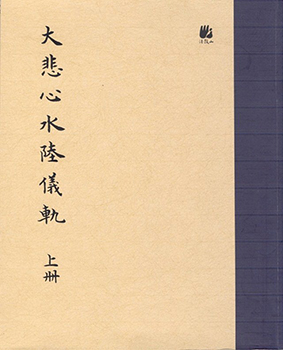 大悲心水陸儀軌
上冊
法鼓山